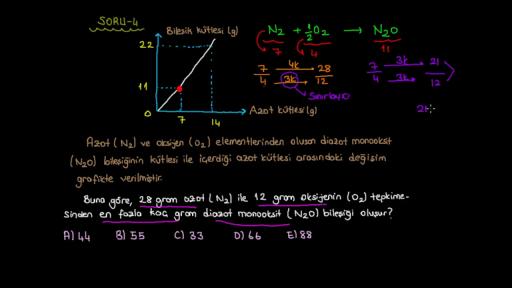 SORU-4
Bileşik kütlesi (g)
22
11
0
7
14
Azot kütlesi (g)
N₂ + 1/2 O₂ → N₂O
7 4 11
7 4k 28
4 3k 12
Sınırlayıcı
7 3k 21
4 3k 12
Azot (N₂) ve oksijen (O₂) elementlerinden oluşan diazot monooksit
(N₂O) bileşiğinin kütlesi ile içerdiği azot kütlesi arasındaki değişim
grafikte verilmiştir.
Buna göre, 28 gram azot (N₂) ile 12 gram oksijenin (O₂) tepkime-
sinden en fazla kaç gram diazot monooksit (N₂O) bileşiği oluşur?
A) 44 B) 55 C) 33 D) 66 E) 88